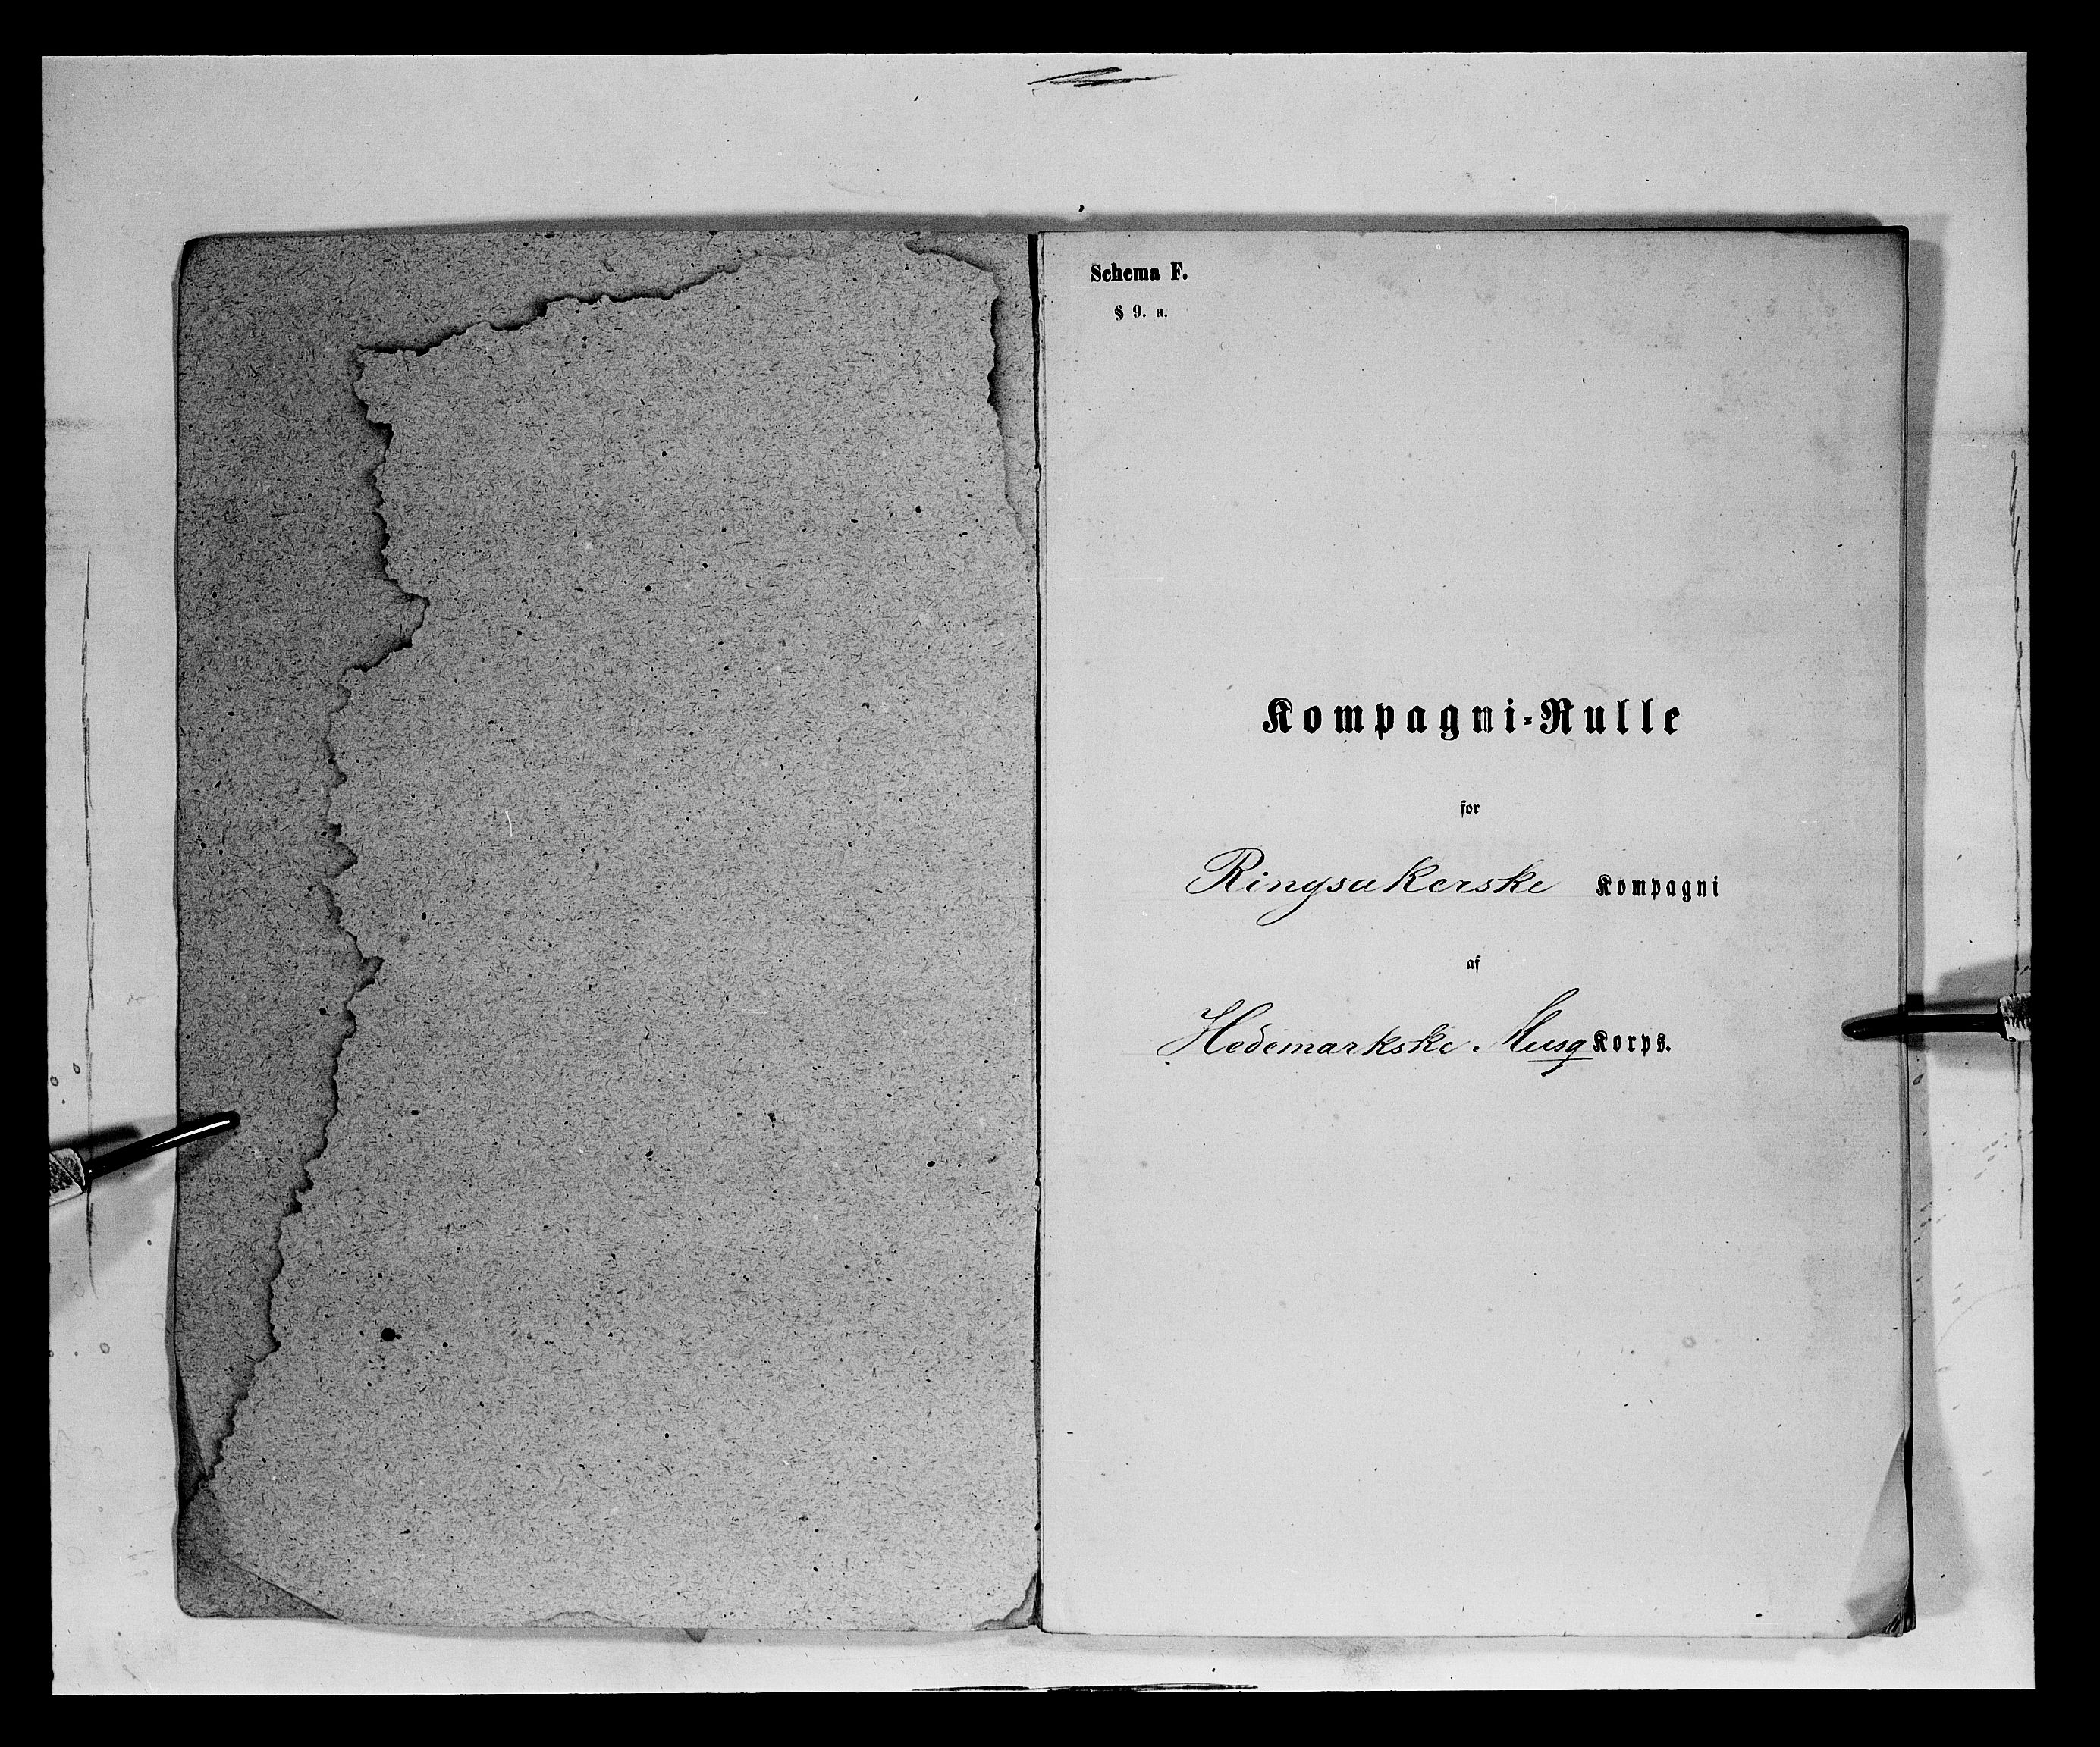 Schema F.
§ 9. a.
Kompagni-Rulle
for
Ringsakerske Kompagni
af
Hedemarkske Musq Korps.